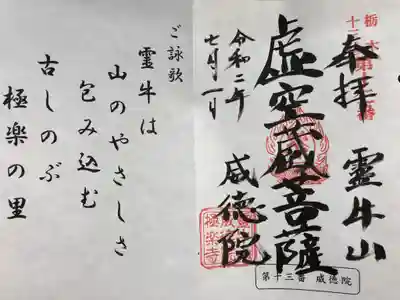 奉拝 霊牛山
虚空蔵菩薩
令和二年
七月一日
威徳院
第十三番 威徳院
ご詠歌
霊牛は
山のやさしさ
包み込む
古しのぶ
極楽の里